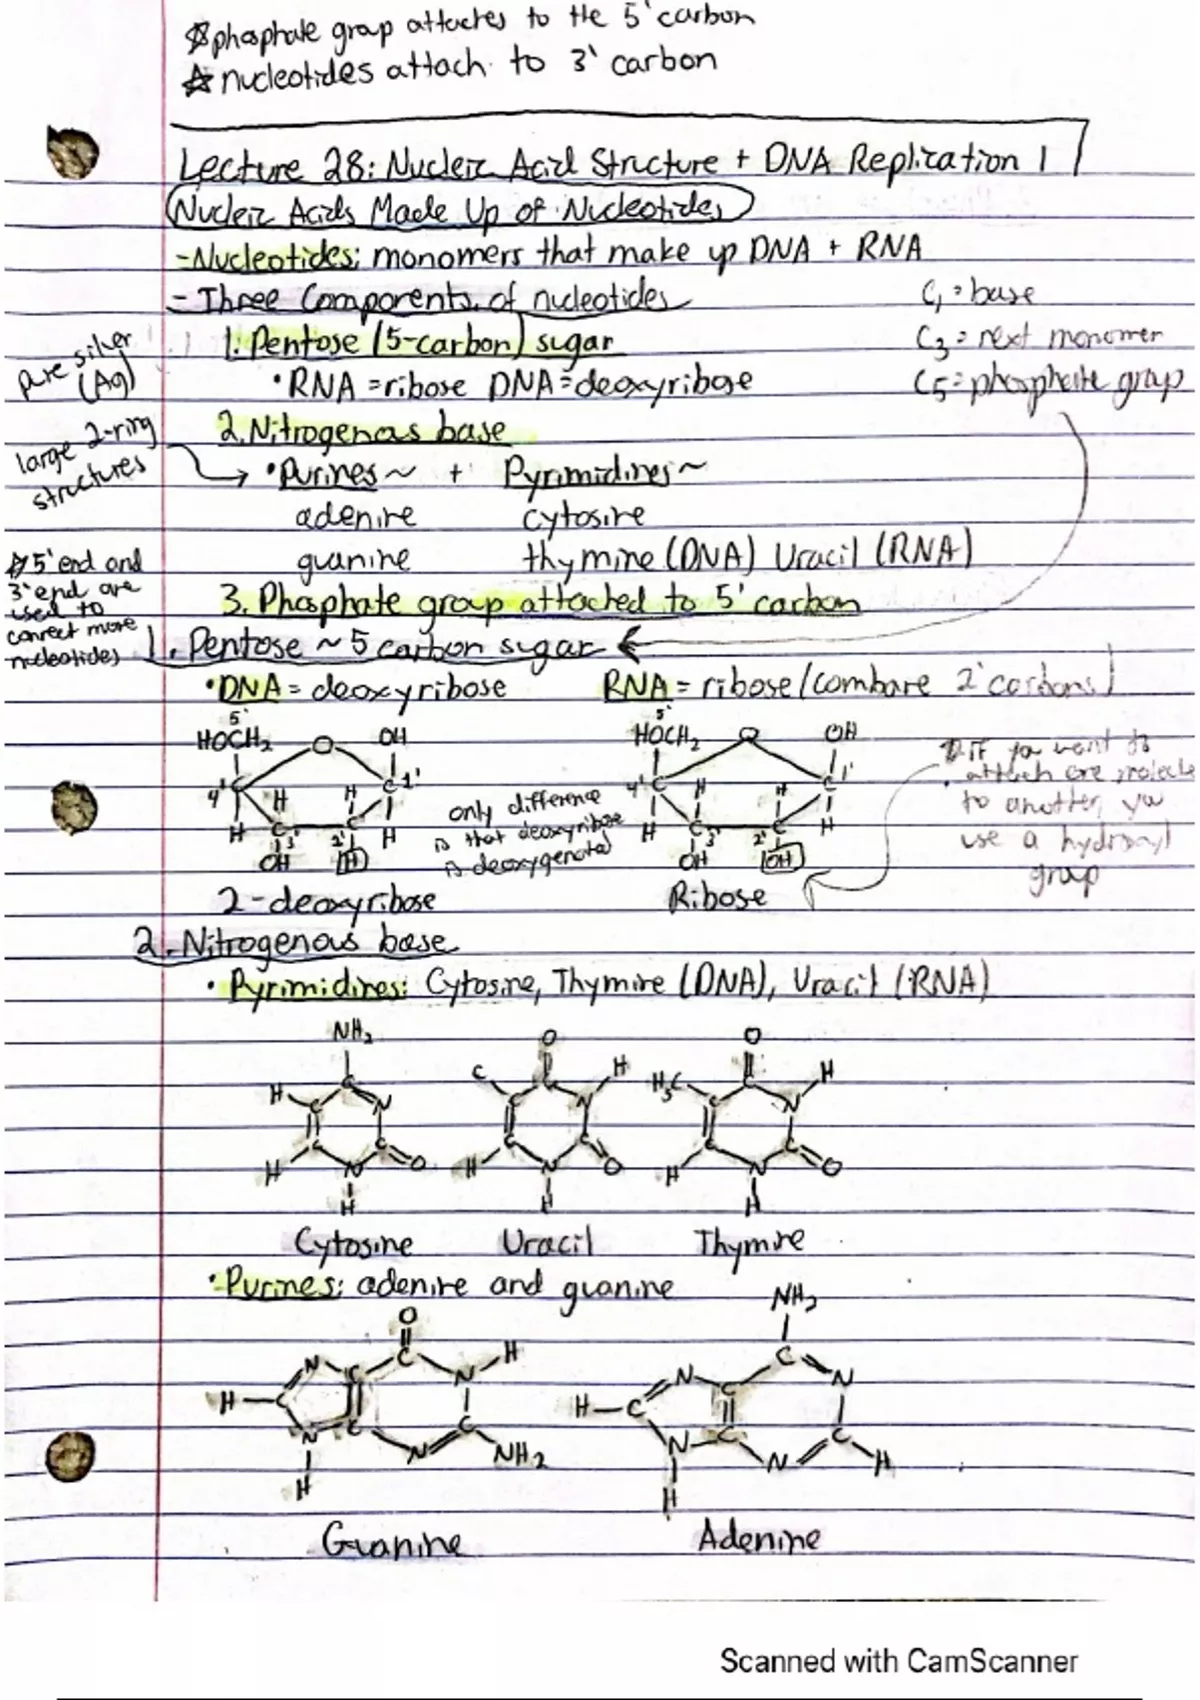 ☆ phosphate group attaches to the 5' carbon
☆ nucleotides attach to 3' carbon
Lecture 28: Nucleic Acid Structure + DNA Replication 1
Nucleic Acids Made Up of Nucleotides
- Nucleotides: monomers that make up DNA + RNA
- Three Components of nucleotides
C₁ = base
1. Pentose (5-carbon) sugar
C₃ = next monomer
• RNA = ribose DNA = deoxyribose
C5 = phosphate group
pure silver
(Ag)
2. Nitrogenous base
large 2-ring
structures
• Purines ~ + Pyrimidines ~
adenine cytosine
guanine thymine (DNA) Uracil (RNA)
☆ 5' end and
3' end are
used to
connect more
nucleotides
3. Phosphate group attached to 5' carbon
1. Pentose ~ 5 carbon sugar
• DNA = deoxyribose RNA = ribose (compare 2' carbons)
5' 5'
HOCH₂ O OH HOCH₂ O OH
4' C C 1' 4' C C 1'
H H H H H H H H
C 3' 2' C C 3' 2' C
OH H OH OH
only difference
is that deoxyribose
is deoxygenated
if you want to
attach one molecule
to another, you
use a hydroxyl
group
2-deoxyribose Ribose
2. Nitrogenous base
• Pyrimidines: Cytosine, Thymine (DNA), Uracil (RNA)
NH₂ O O
H C N C C H H₃C C H
C C C N C N
C N C O C N C O C N C O
H H H H H H
Cytosine Uracil Thymine
• Purines: adenine and guanine
O NH₂
N C C N H N C C N
H C H C
N C N C NH₂ N C N C H
H H
Guanine Adenine
Scanned with CamScanner